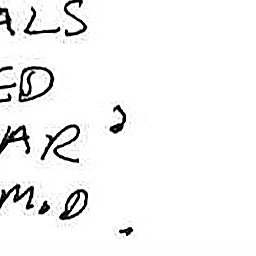 ALS
ED
AR ?
M.D.